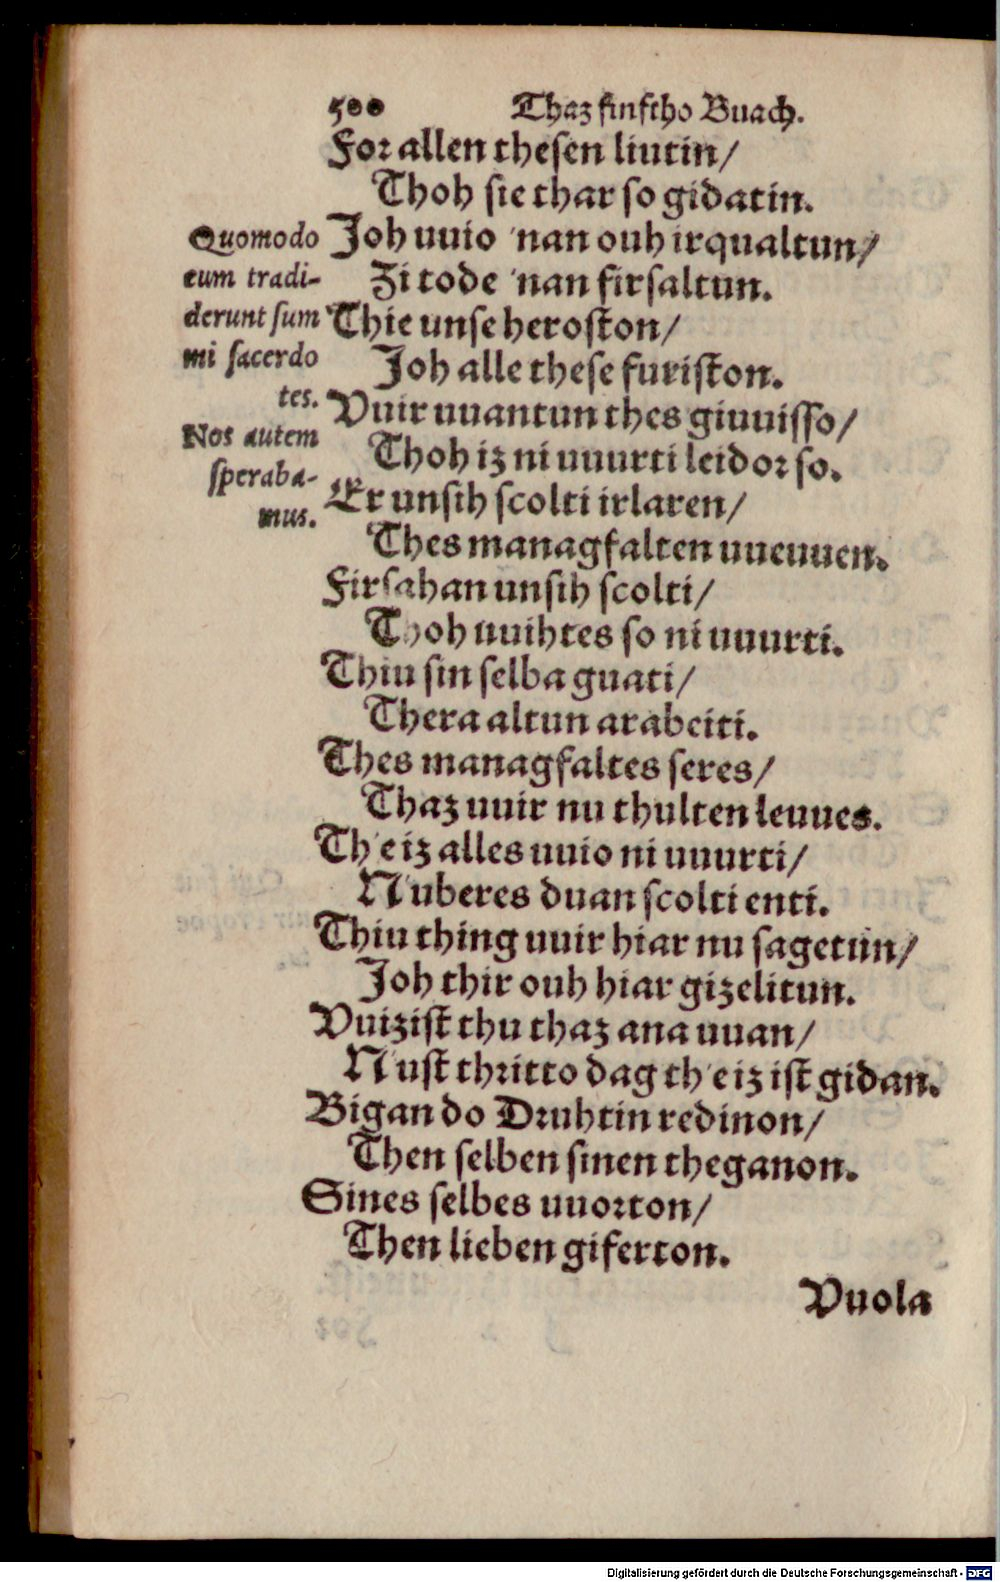 500 Thaz finftho Buach.
For allen thesen liutin/
Thoh sie thar so gidatin.
Joh uuio 'nan ouh irqualtun/
Zi tode 'nan firsaltun.
Thie unse heroston/
Joh alle these furiston.
Vuir uuantun thes giuuisso/
Thoh iz ni uuurti leidor so.
Er unsih scolti irlaren/
Thes managfalten uueuuen.
Firsahan unsih scolti/
Thoh uuihtes so ni uuurti.
Thiu sin selba guati/
Thera altun arabeiti.
Thes managfaltes seres/
Thaz uuir nu thulten leuues.
Th'eiz alles uuio ni uuurti/
N'uberes duan scolti enti.
Thiu thing uuir hiar nu sagetun/
Joh thir ouh hiar gizelitun.
Vuizist thu thaz ana uuan/
N'ust thritto dag th'eiz ist gidan.
Bigan do Druhtin redinon/
Then selben sinen theganon.
Sines selbes uuorton/
Then lieben giferton.
Vuola
Quomodo
eum tradi-
derunt sum
mi sacerdo
tes.
Nos autem
speraba-
mus.
Digitalisierung gefördert durch die Deutsche Forschungsgemeinschaft - DFG